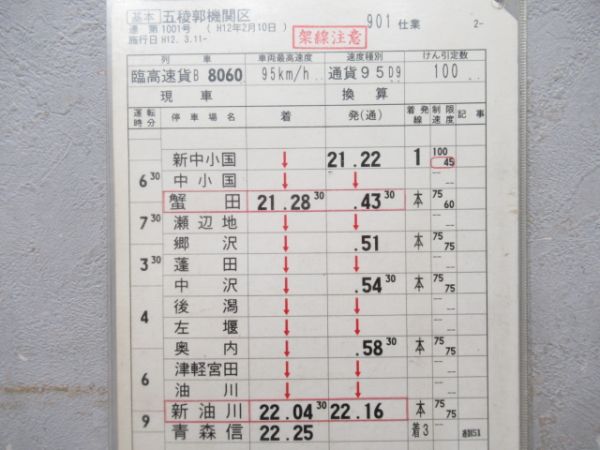 基本 五稜郭機関区
運 第 1001号 ( H12年2月10日 ) 架線注意 901 仕業 2-
施行日 H12. 3.11-
列 車 車両最高速度 速度種別 けん引定数
臨高速貨B 8060 95km/h 通貨95D9 100
現 車 換 算
運転時分 停 車 場 名 着 発(通) 着発線 制限速度 記 事
新中小国 ↓ 21.22 1 100 45
6 30 中 小 国 ↓ ↓
蟹 田 21.28 30 .43 30 本 75 60
7 30 瀬 辺 地 ↓ ↓
郷 沢 ↓ .51 本 75 75
3 30 蓬 田 ↓ ↓
中 沢 ↓ .54 30 本 75 75
4 後 潟 ↓ ↓
左 堰 ↓ ↓
奥 内 ↓ .58 30 本 75 75
6 津軽宮田 ↓ ↓
油 川 ↓ ↓
9 新 油 川 22.04 30 22.16 本 75 75
青 森 信 22.25 着3